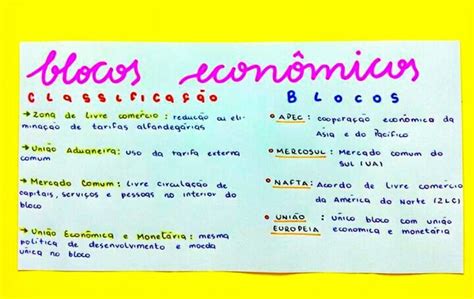 blocos econômicos
CLASSIFICAÇÃO
→ Zona de livre comércio: redução ou eli-
minação de tarifas alfandegárias
→ União Aduaneira: uso da tarifa externa
comum
→ Mercado Comum: livre circulação de
capitais, serviços e pessoas no interior do
bloco
→ União Econômica e Monetária: mesma
política de desenvolvimento e moeda
única no bloco
BLOCOS
APEC: cooperação econômica da
Ásia e do Pacífico
MERCOSUL: Mercado comum do
sul (UA)
NAFTA: Acordo de livre comércio
da América do Norte (ZLC)
UNIÃO EUROPEIA: único bloco com união
economica e monetária